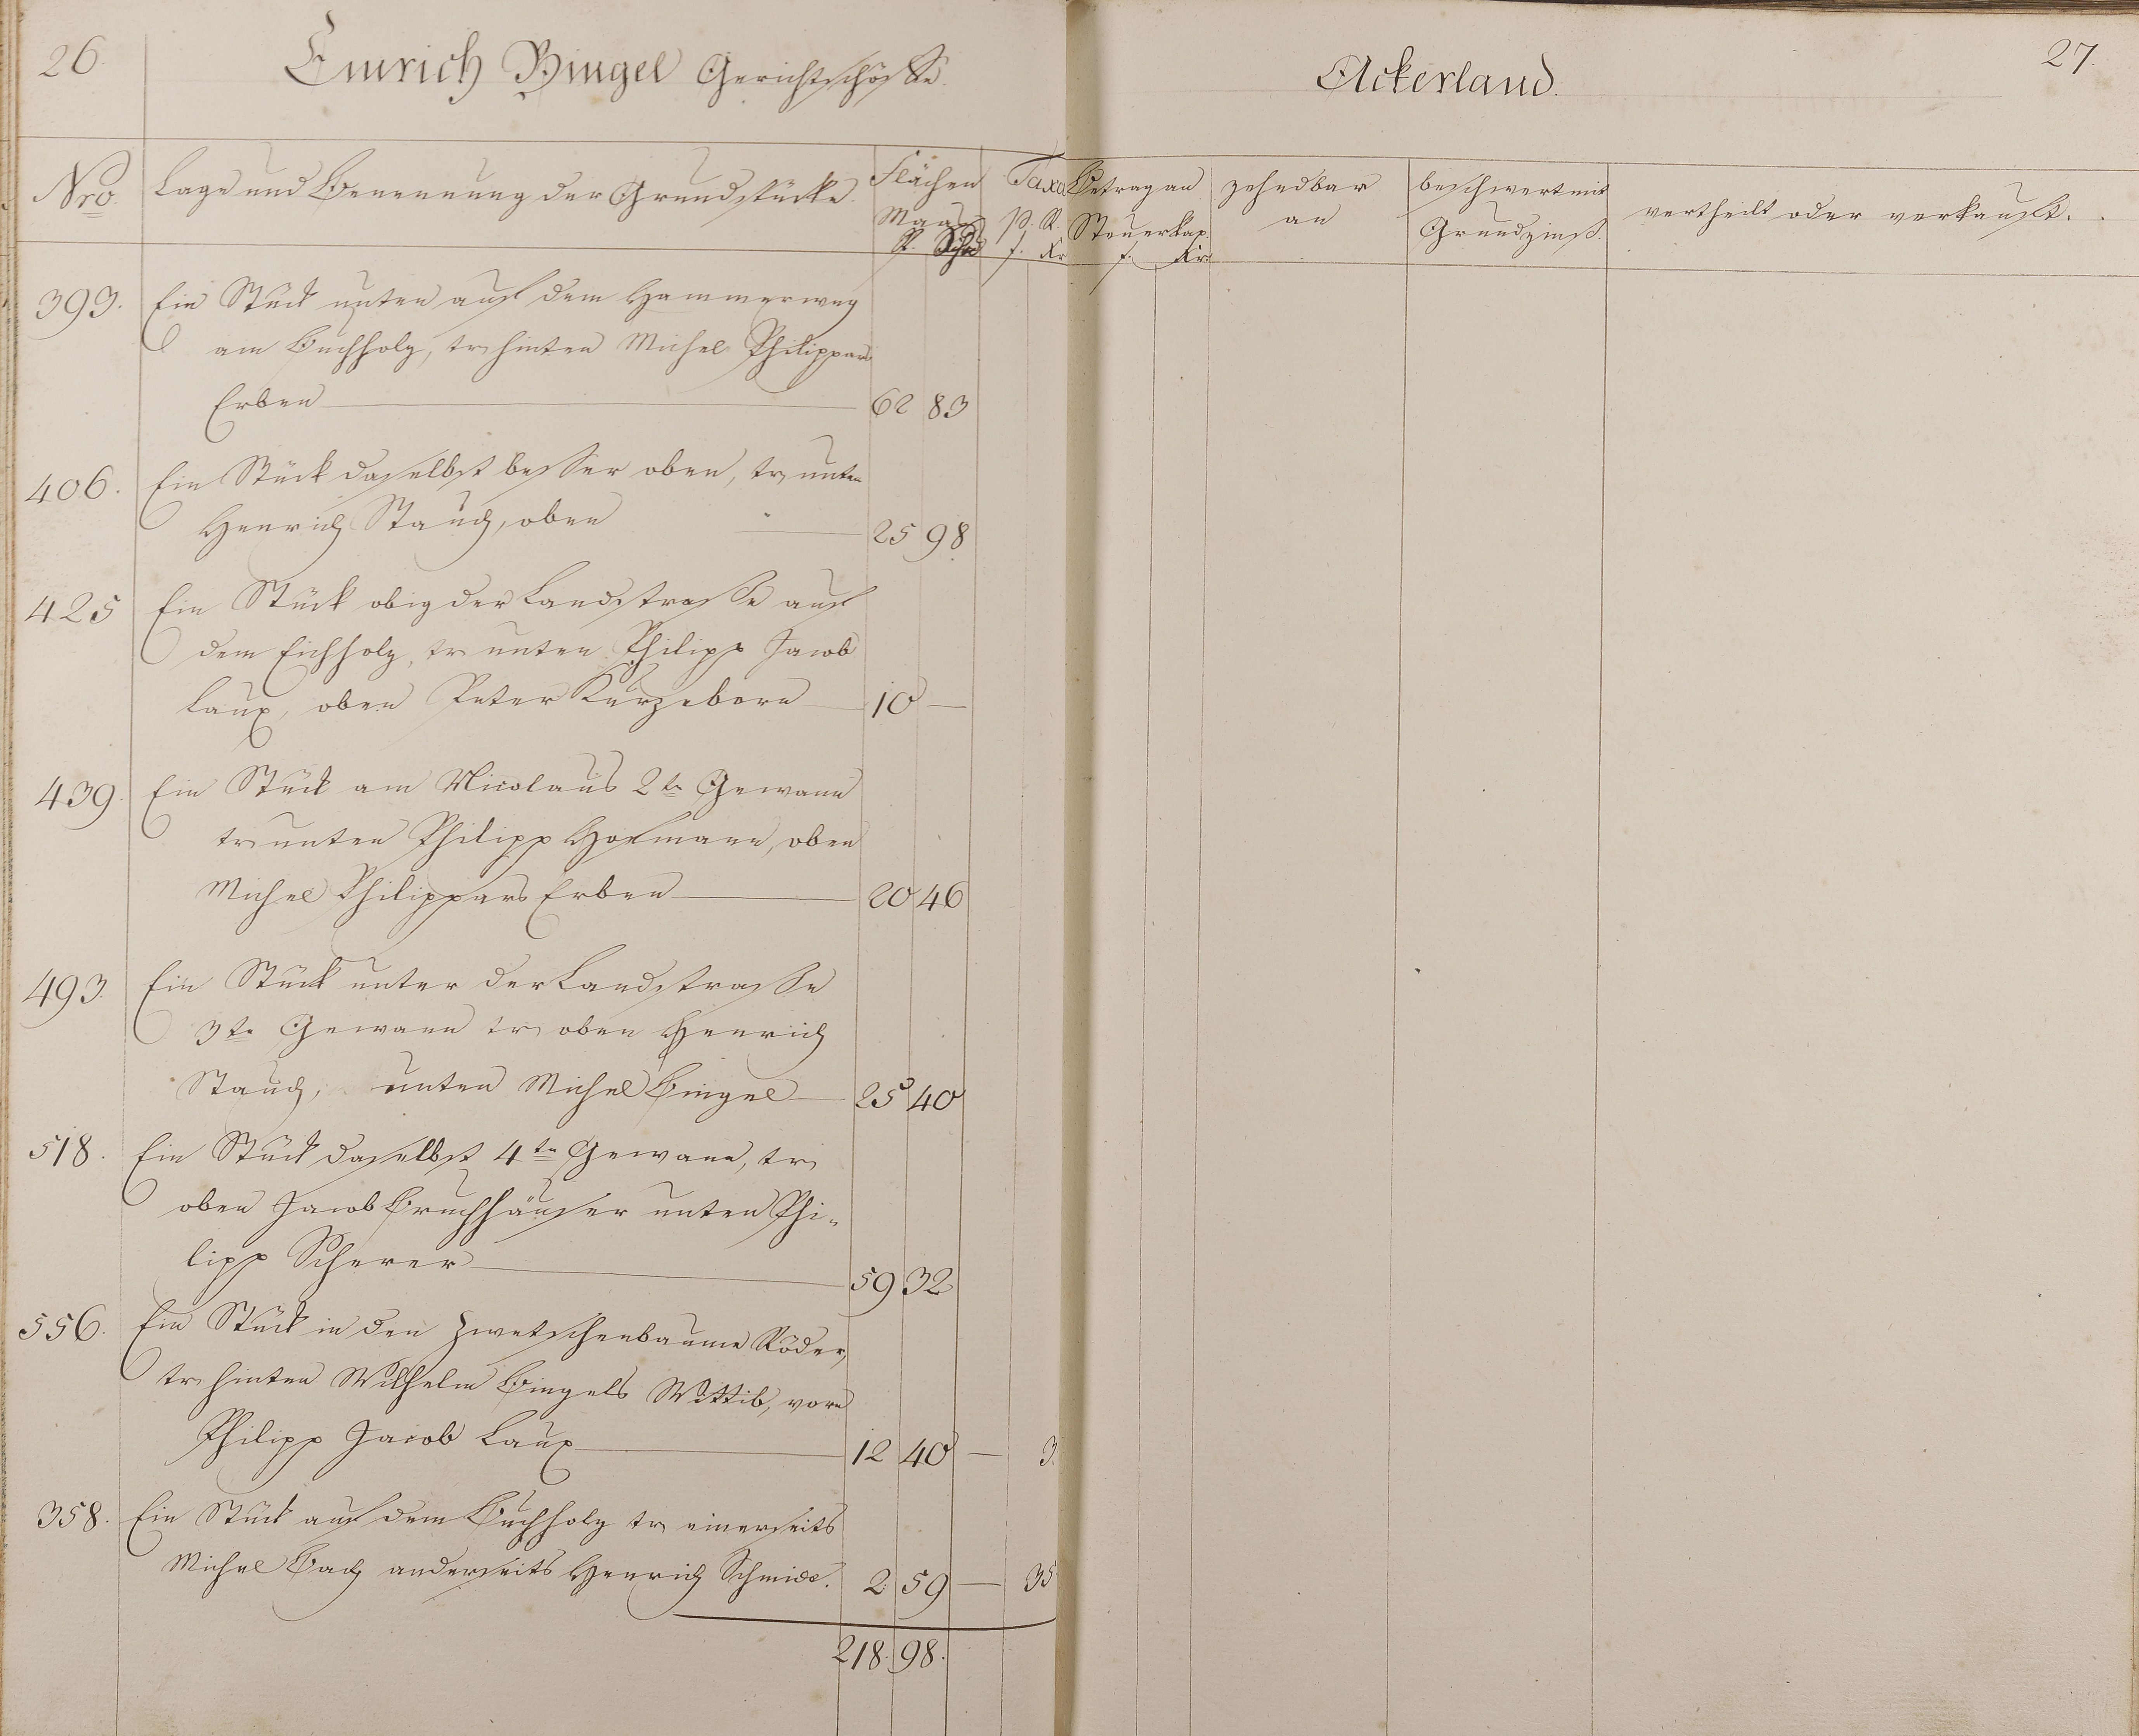 26.
Emrich Bingel Gerichtschöffe.
Nro.
Lage und Benennung der Grundstücke.
Flächen
Maas
R. Schu
Taxa
p. R.
f. Kr
393. Ein Stück unten auf dem Hammerweg
am Buchholz, tr hinten Michel Philippars
Erben 62 83
406. Ein Stück daselbst besser oben, tr unten
Henrich Stauch, oben 25 98.
425 Ein Stück obig der Landstrasse auf
dem Eichholz, tr unten Philipp Jacob
Laux, oben Peter Kurzeborn 10 —
439. Ein Stück am Nicolaus 2te Gewann
tr unten Philipp Hofmann, oben
Michel Philippars Erben 20 46
493. Ein Stück unter der Landstrasse
3te Gewann tr oben Henrich
Stauch, unten Michel Bingel 25 40
518. Ein Stück daselbst 4te Gewann, tr
oben Jacob Bruchhäuser unten Phi-
lipp Scherer 59 32
556. Ein Stück in den Zwetschenbaume Röder,
tr hinten Wilhelm Bingels Wittib, vorn
Philipp Jacob Laux 12 40 — 3.
358. Ein Stück auf dem Buchholz tr einerseits
Michel Bach anderseits Henrich Schmidt. 2. 59 — 35
218. 98.
Ackerland.
27.
Betrag an
Steuerkap.
f. Kr
zehndbar
an
beschwert mit
Grundzinß.
vertheilt oder verkauft.